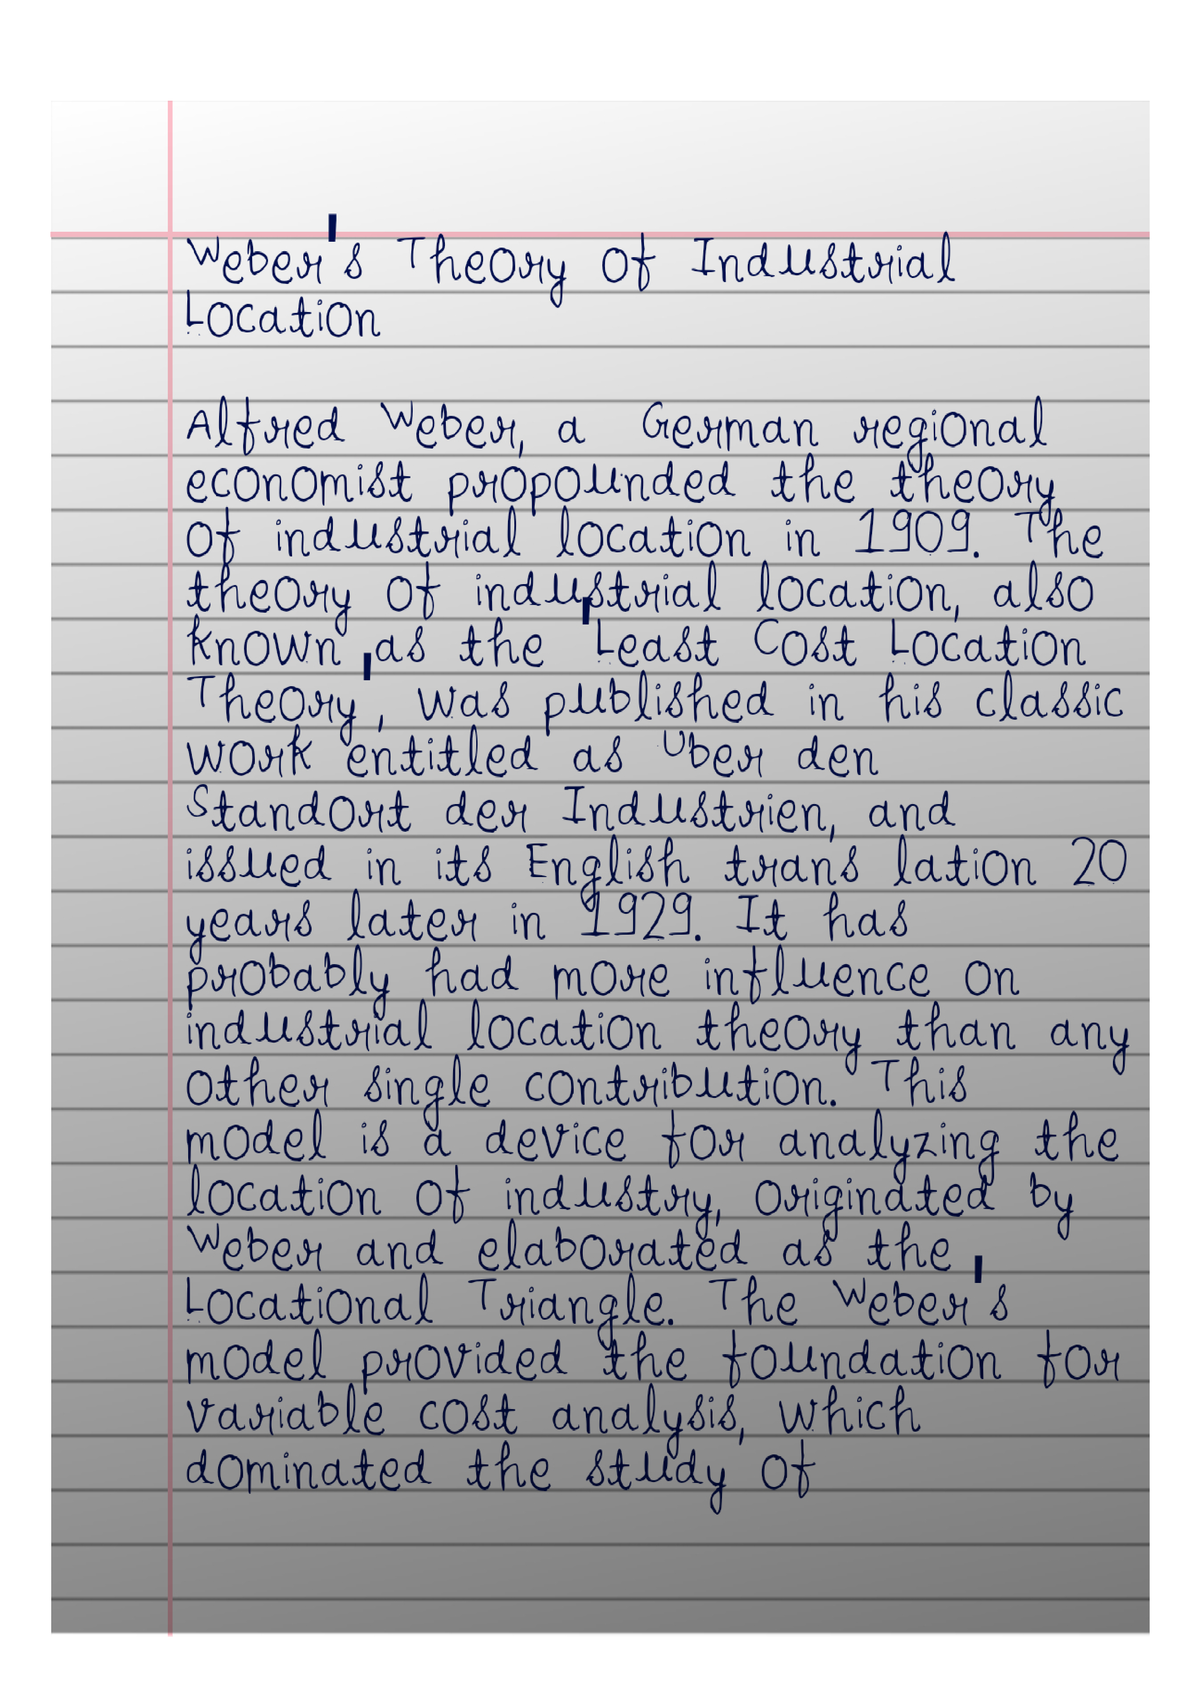 Weber's Theory of Industrial
Location
Alfred Weber, a German regional
economist propounded the theory
of industrial location in 1909. The
theory of industrial location, also
known as the 'Least Cost Location
Theory', was published in his classic
work entitled as Uber den
Standort der Industrien, and
issued in its English trans lation 20
years later in 1929. It has
probably had more influence on
industrial location theory than any
other single contribution. This
model is a device for analyzing the
location of industry, originated by
Weber and elaborated as the
Locational Triangle. The Weber's
model provided the foundation for
variable cost analysis, which
dominated the study of